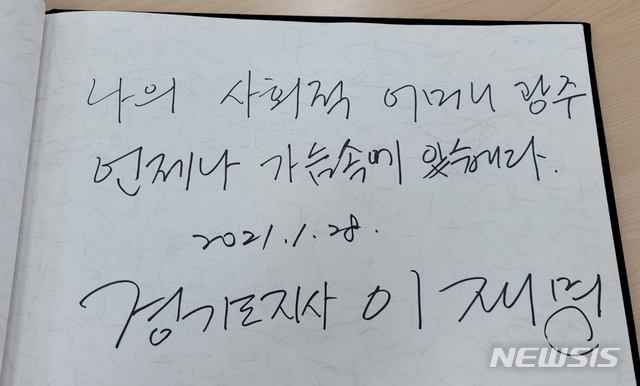 나의 사회적 어머니 광주
언제나 가슴속에 있습니다.
2021.1.28.
경기도지사 이재명
NEWSIS